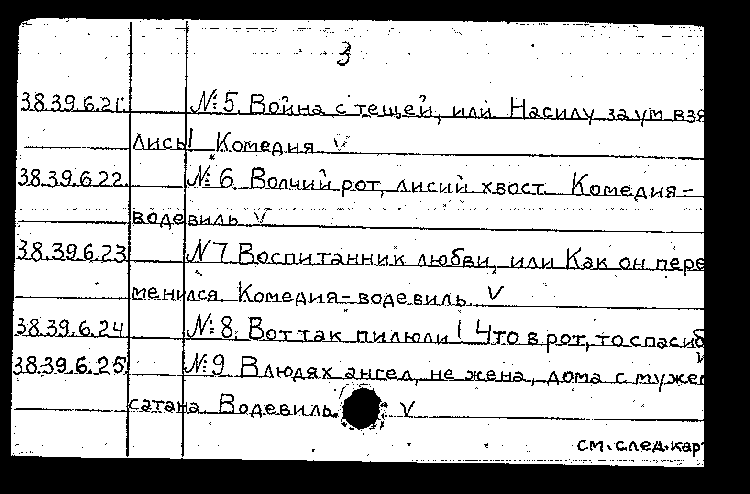 3
38.39.6.21. №5. Война с тещей, или Насилу за ум взя
лись! Комедия V
38.39.6.22. №6. Волчий рот, лисий хвост. Комедия-
водевиль V
38.39.6.23 N7. Воспитанник любви, или Как он пере
менился. Комедия-водевиль. V
38.39.6.24 №8. Вот так пилюли! Что в рот, то спасиб
38.39.6.25 №9. В людях ангел, не жена, дома с муже
сатана. Водевиль. V
см. след. кар